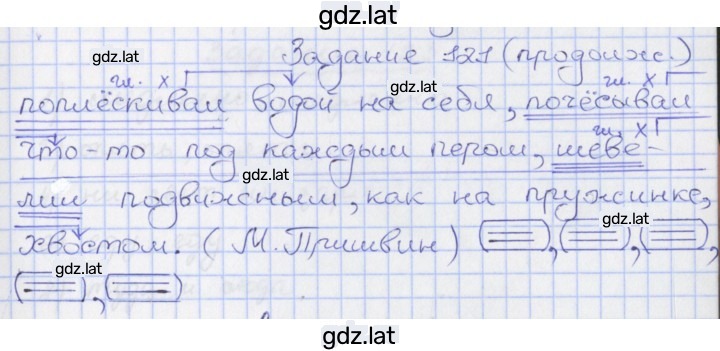 gdz.lat
Задание 121 (продолж.)
гл. х гл. х
gdz.lat
поплёскивал водой на себя, почёсывал
гл. х
что-то под каждым пером, шеве-
gdz.lat
лил подвижным, как на пружинке,
gdz.lat
хвостом. (М. Пришвин)
gdz.lat
gdz.lat